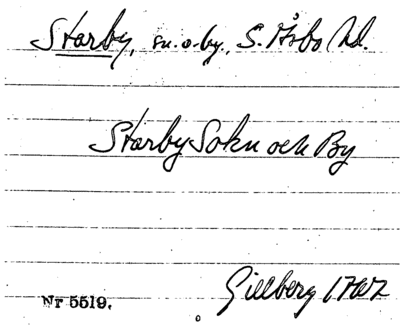 Starby, sn. o. by., S. Åsbo hd.
Starby Sokn och By
Gillberg 1767
Nr 5519.